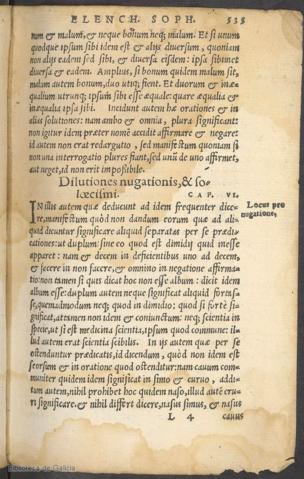 ELENCH. SOPH. 535
num & malum, & neque bonum neq; malum. Et si unum
quodque ipsum sibi idem est & alijs diuersum, quoniam
non alijs eadem sed sibi, & diuersa eisdem: ipsa sibiinet
diuersa & eadem. Amplius, si bonum quidem malum sit,
malum autem bonum, duo utiq; fient. Et duorum & inæ-
qualium utrunq; ipsum sibi esse æquale: quare æqualia &
inæqualia ipsa sibi. Incidunt autem hæ orationes & in
alias solutiones: nam ambo & omnia, plura significant:
non igitur idem præter nomē accidit affirmare & negare:
id autem non erat redargutio, sed manifestum quoniam si
non una interrogatio plures fiant, sed unū de uno affirmet,
aut neget, id non erit impossibile.
Dilutiones nugationis, & so-
lœcismi. CAP. VI.
IN illis autem quæ deducunt ad idem frequenter dice-
re, manifestum quòd non dandum eorum quæ ad ali-
quid dicuntur significare aliquid separatas per se prædi-
cationes: ut duplum sine eo quod est dimidij quod inesse
apparet: nam & decem in deficientibus uno ad decem,
& facere in non facere, & omnino in negatione affirma-
tio: non tamen si quis dicat hoc non esse album: dicit idem
album esse: duplum autem neque significat aliquid fortas-
se, quemadmodum neq; quod in dimidio: quod si fortè si-
gnificat, attamen non idem & coniunctum: neq; scientia in
specie, ut si est medicina scientia, ipsum quod commune: il-
lud autem erat scientia scibilis. In ijs autem quæ per se
ostenduntur prædicatis, id dicendum, quòd non idem est
seorsum & in oratione quod ostenditur: nam cauum com-
muniter quidem idem significat in simo & curuo, addi-
tum autem, nihil prohibet hoc quidem naso, illud autē cru-
ri significare: & nihil differt dicere, nasus simus, & nasus
L 4 cauus
Locus pro
nugatione.
Biblioteca de Galicia